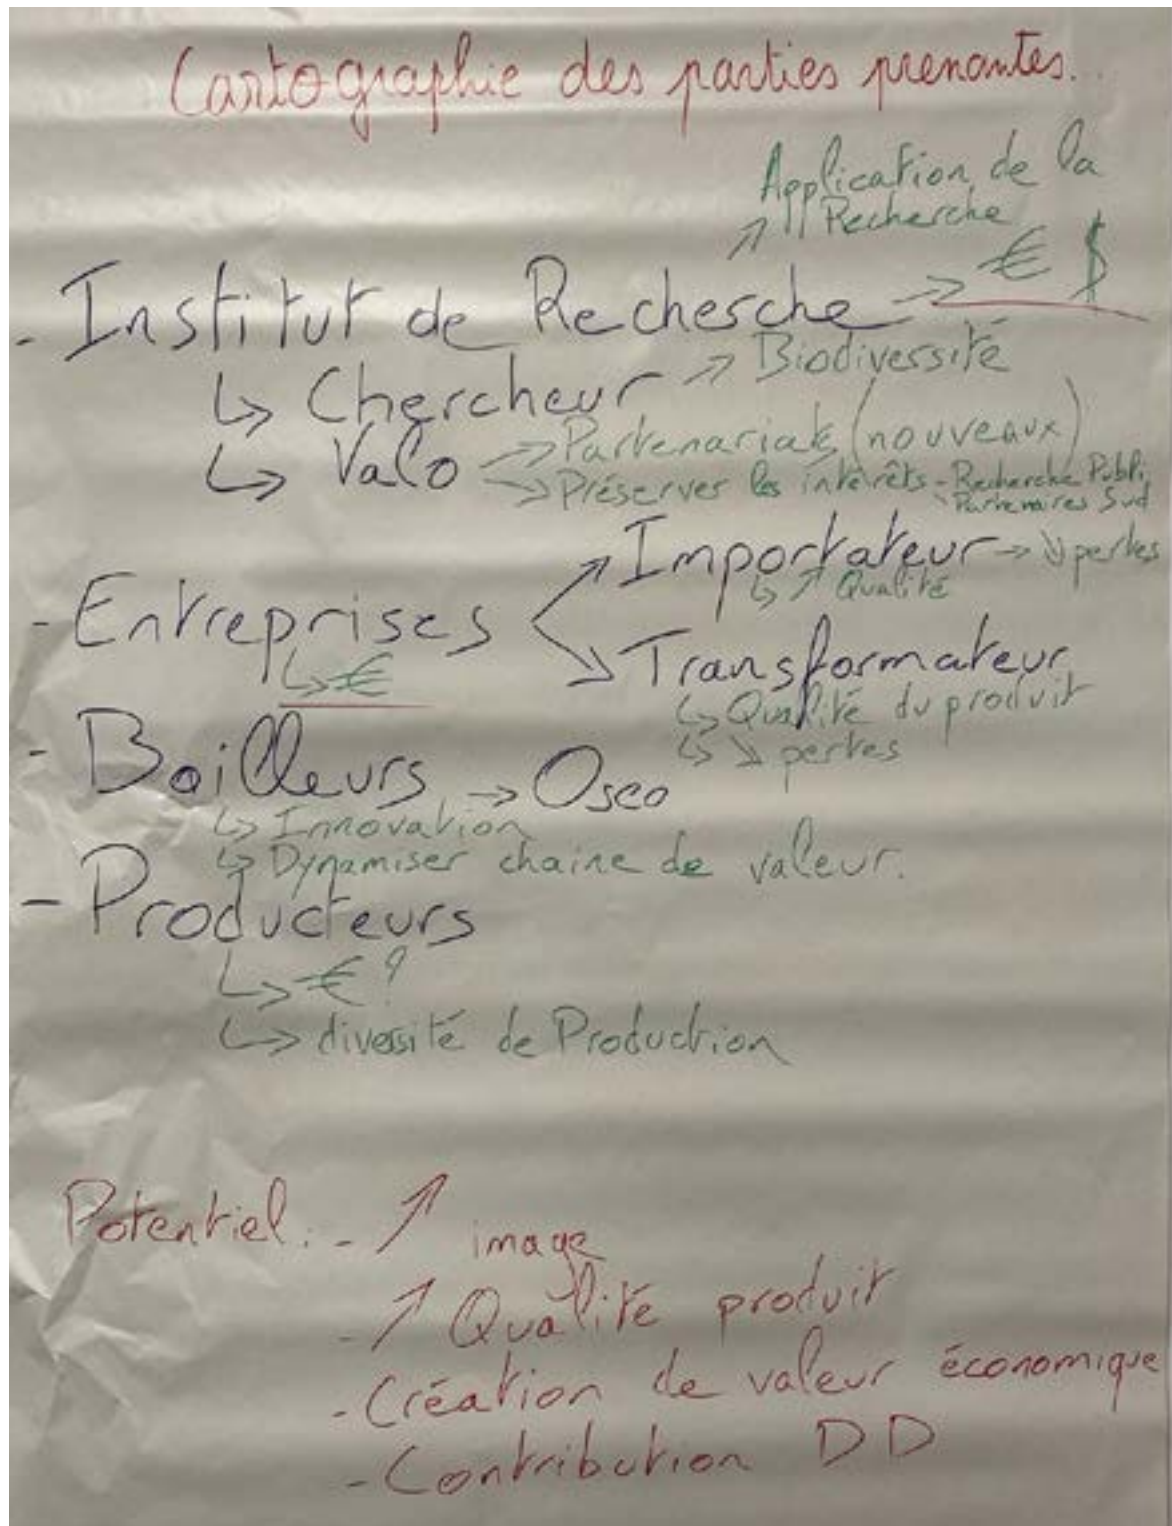 Cartographie des parties prenantes.
Application de la
↗ Recherche
- Institut de Recherche → € $
↳ Chercheur ↗ Biodiversité
↳ Valo → Partenariats (nouveaux)
→ Préserver les intérêts - Recherche Publi
- Partenaires Sud
↗ Importateur → ↘ pertes
↳ ↗ Qualité
- Entreprises
↳ €
↘ Transformateur
↳ Qualité du produit
↳ ↘ pertes
- Bailleurs → Oseo
↳ Innovation
↳ Dynamiser chaine de valeur.
- Producteurs
↳ € ?
↳ diversité de Production
Potentiel : - ↗ image
- ↗ Qualité produit
- Création de valeur économique
- Contribution DD